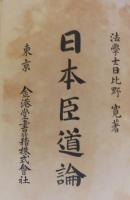 法學士日比野寛著
日本臣道論
東京　金港堂書籍株式會社